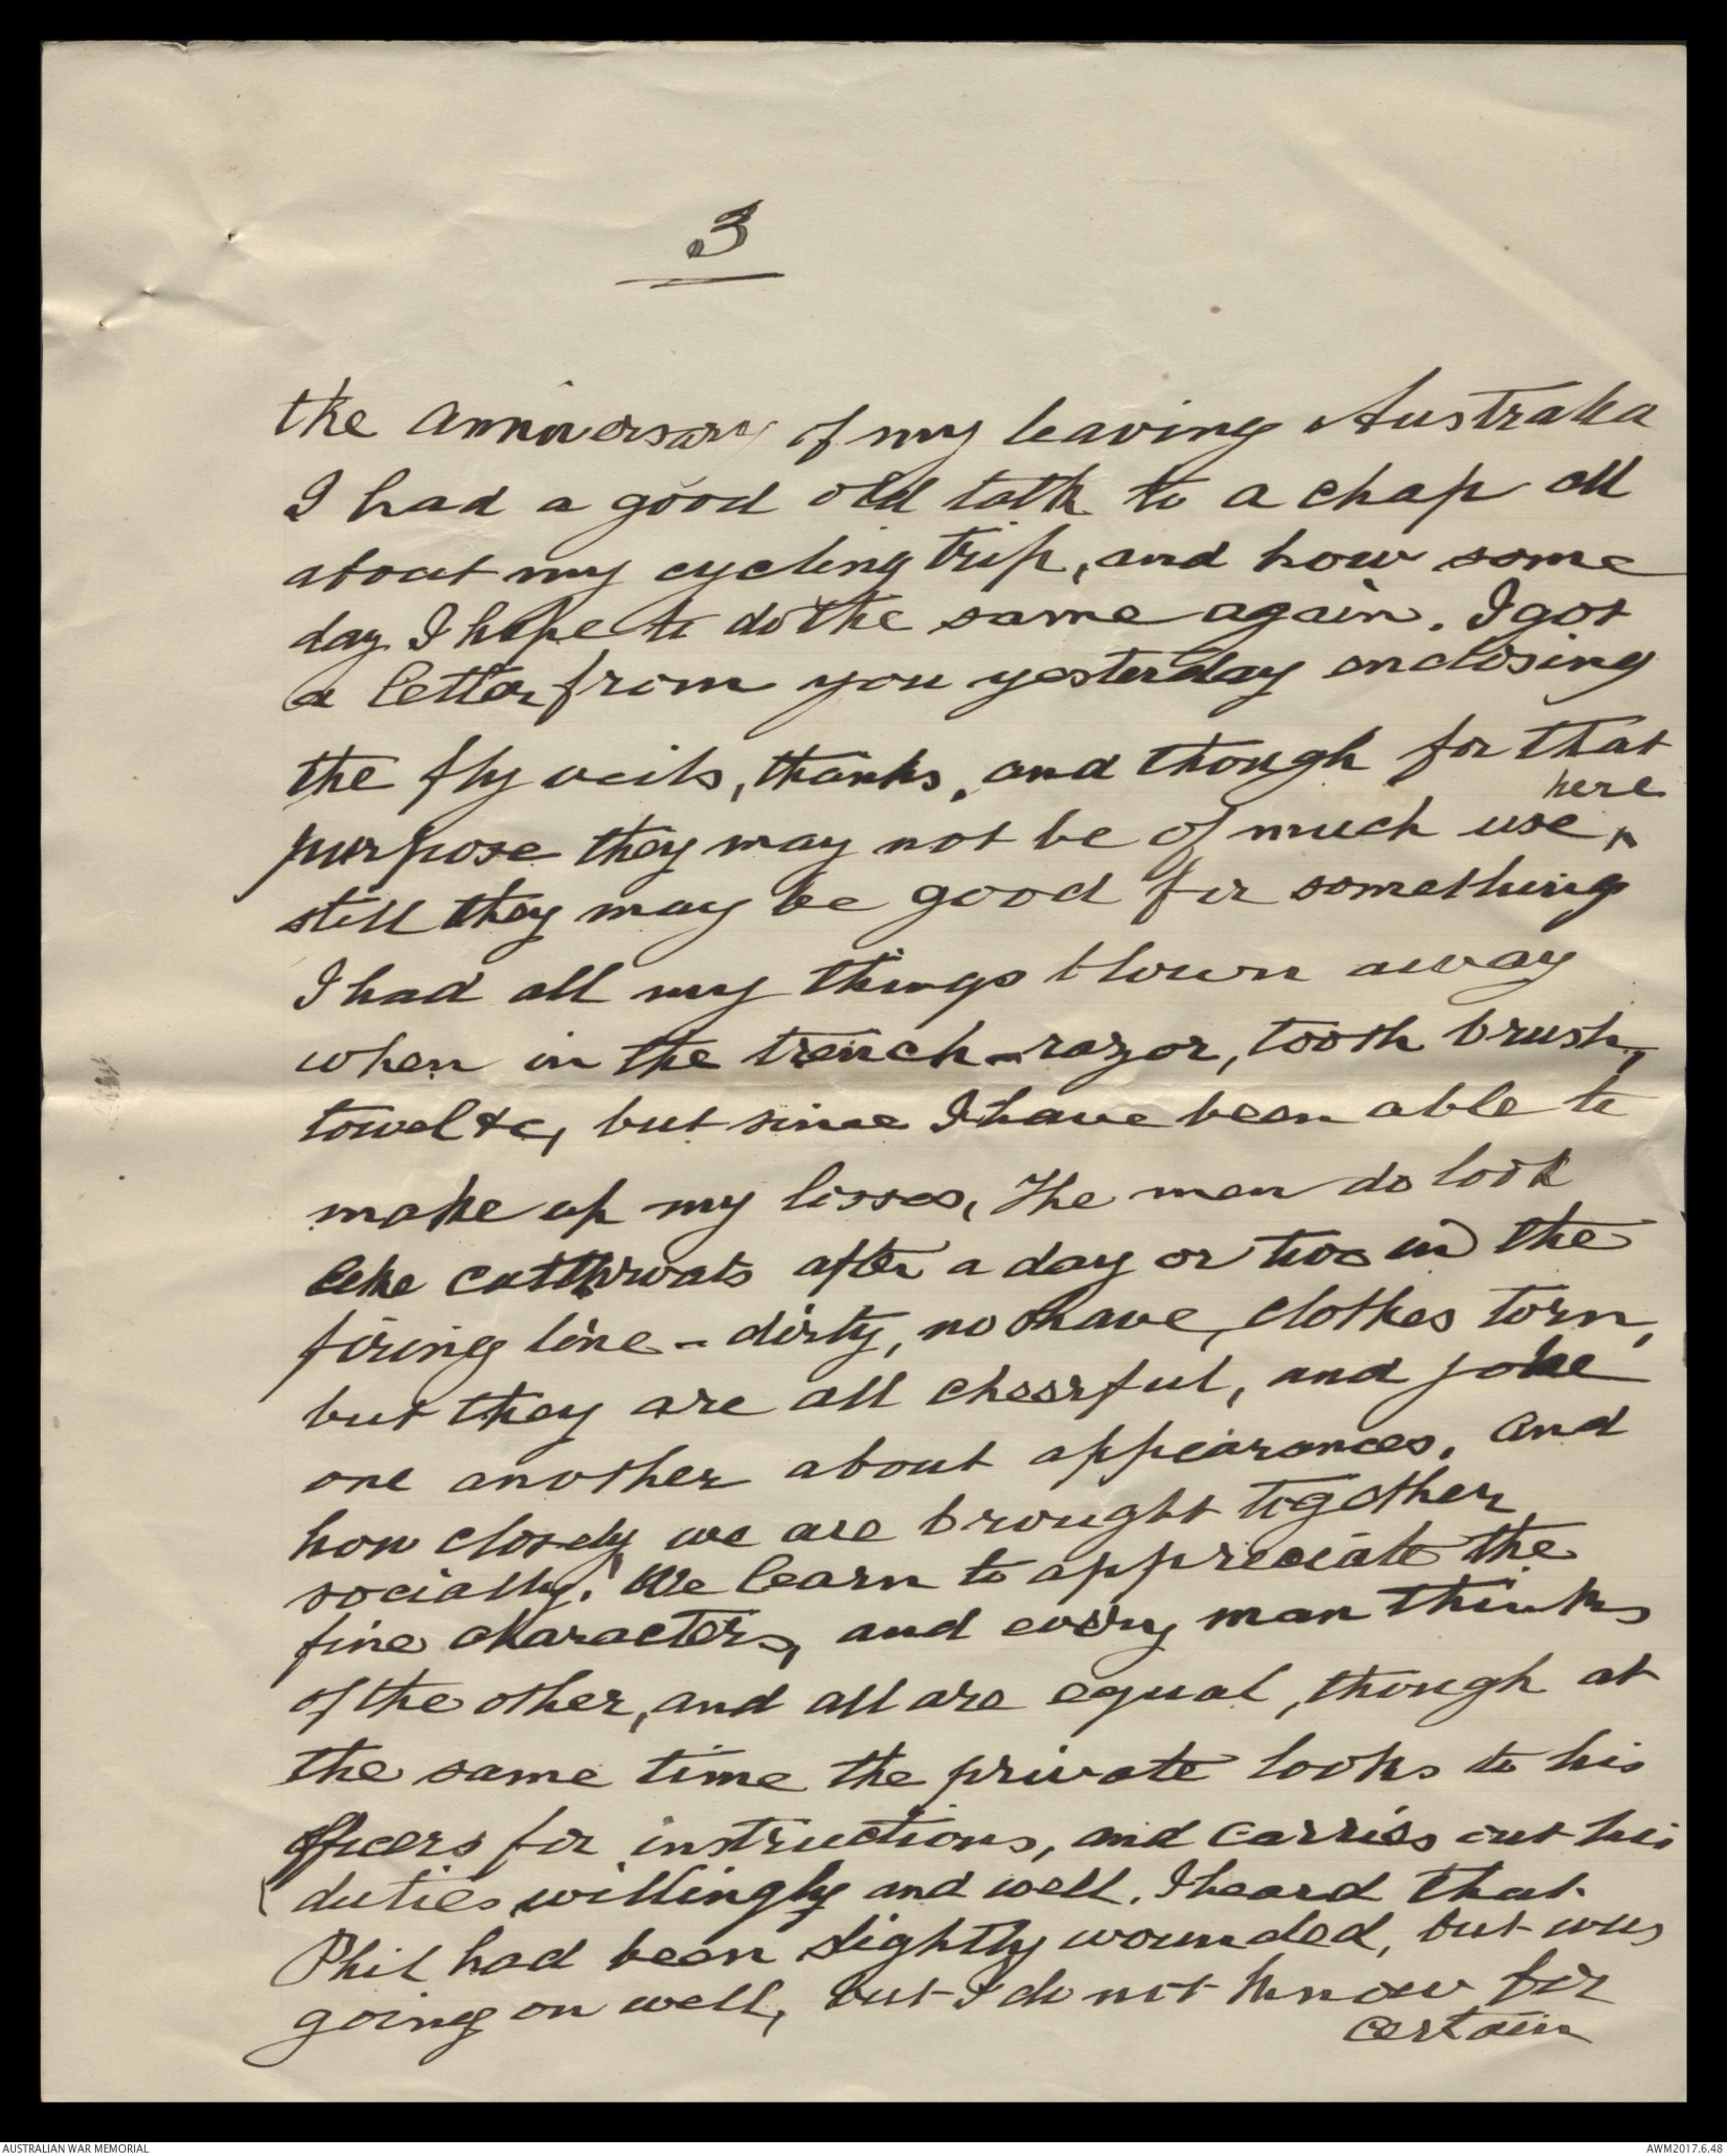 3
the anniversary of my leaving Australia
I had a good old talk to a chap all
about my cycling trip, and how some
day I hope to do the same again. I got
a letter from you yesterday enclosing
the fly veils, thanks, and though for that
purpose they may not be of much use, ^ here
still they may be good for something
I had all my things blown away
when in the trench - razor, tooth brush,
towel &c, but since I have been able to
make up my losses, The men do look
like cutthroats after a day or two in the
firing line - dirty, no shave, clothes torn,
but they are all cheerful, and joke
one another about appearances. And
how closely we are brought together
socially! We learn to appreciate the
fine characters, and every man thinks
of the other, and all are equal, though at
the same time the private looks to his
officers for instructions, and carries out his
duties willingly and well. I heard that
Phil had been slightly wounded, but was
going on well, but I do not know for
certain
AUSTRALIAN WAR MEMORIAL
AWM2017.6.48